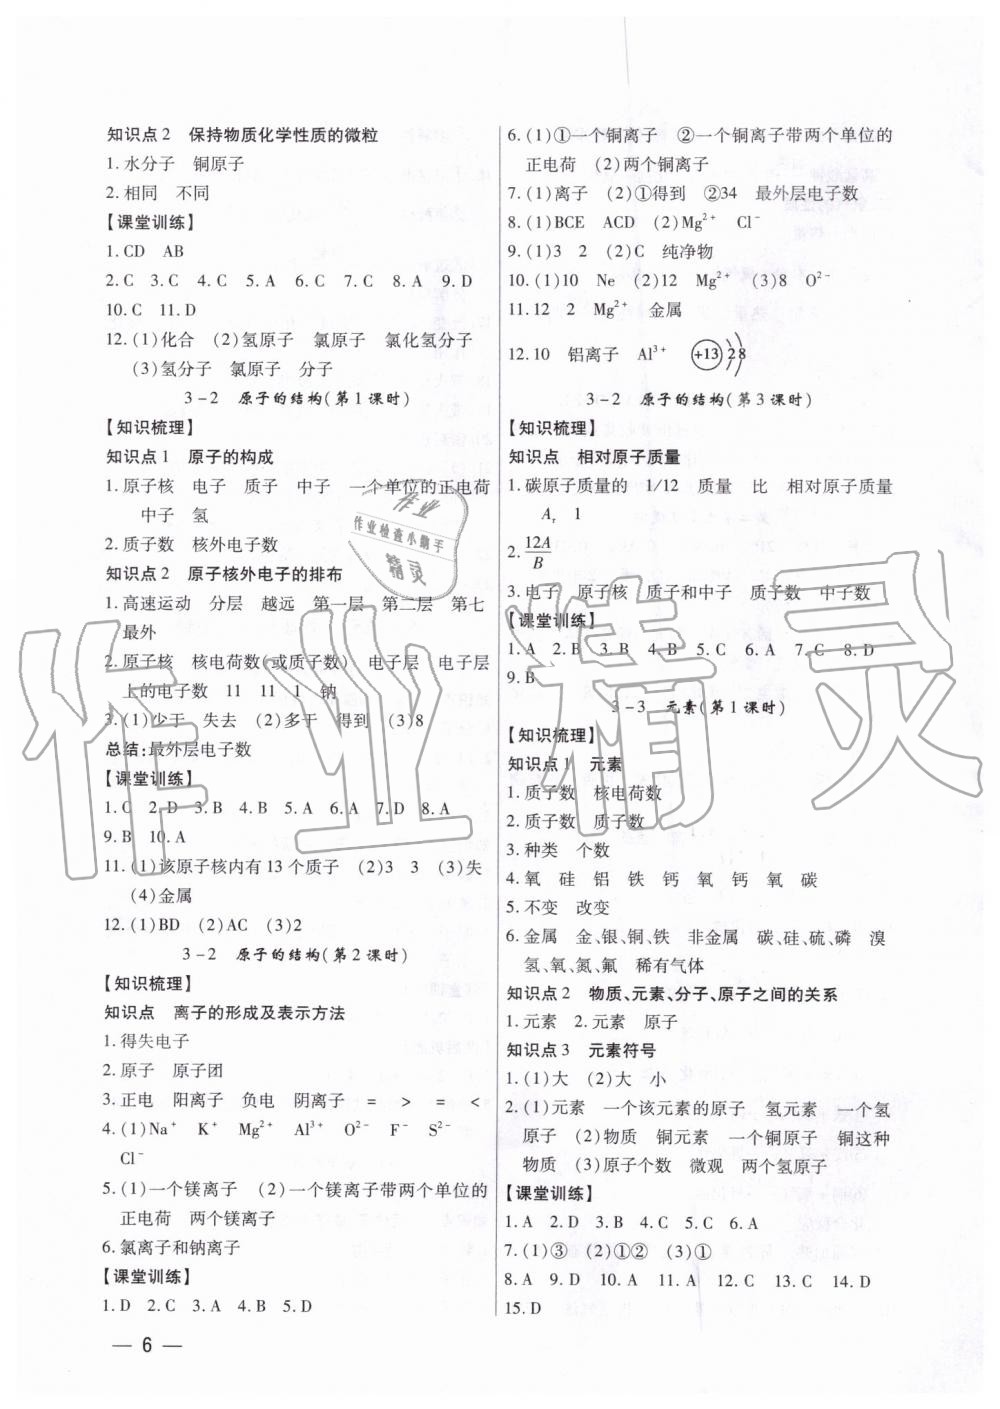 知识点2 保持物质化学性质的微粒
1.水分子 铜原子
2.相同 不同
【课堂训练】
1.CD AB
2.C 3.C 4.C 5.A 6.C 7.C 8.A 9.D
10.C 11.D
12.(1)化合 (2)氢原子 氯原子 氯化氢分子
(3)氢分子 氯原子 分子
3-2 原子的结构(第1课时)
【知识梳理】
知识点1 原子的构成
1.原子核 电子 质子 中子 一个单位的正电荷
中子 氢
2.质子数 核外电子数
知识点2 原子核外电子的排布
1.高速运动 分层 越远 第一层 第二层 第七
最外
2.原子核 核电荷数(或质子数) 电子层 电子层
上的电子数 11 11 1 钠
3.(1)少于 失去 (2)多于 得到 (3)8
总结:最外层电子数
【课堂训练】
1.C 2.D 3.B 4.B 5.A 6.A 7.D 8.A
9.B 10.A
11.(1)该原子核内有13个质子 (2)3 3 (3)失
(4)金属
12.(1)BD (2)AC (3)2
3-2 原子的结构(第2课时)
【知识梳理】
知识点 离子的形成及表示方法
1.得失电子
2.原子 原子团
3.正电 阳离子 负电 阴离子 = > = <
4.(1)Na⁺ K⁺ Mg²⁺ Al³⁺ O²⁻ F⁻ S²⁻
Cl⁻
5.(1)一个镁离子 (2)一个镁离子带两个单位的
正电荷 两个镁离子
6.氯离子和钠离子
【课堂训练】
1.D 2.C 3.A 4.B 5.D
— 6 —
6.(1)①一个铜离子 ②一个铜离子带两个单位的
正电荷 (2)两个铜离子
7.(1)离子 (2)①得到 ②34 最外层电子数
8.(1)BCE ACD (2)Mg²⁺ Cl⁻
9.(1)3 2 (2)C 纯净物
10.(1)10 Ne (2)12 Mg²⁺ (3)8 O²⁻
11.12 2 Mg²⁺ 金属
12.10 铝离子 Al³⁺ +13 2 8
3-2 原子的结构(第3课时)
【知识梳理】
知识点 相对原子质量
1.碳原子质量的 1/12 质量 比 相对原子质量
Aᵣ 1
2. 12A/B
3.电子 原子核 质子和中子 质子数 中子数
【课堂训练】
1.A 2.B 3.B 4.B 5.C 6.A 7.C 8.D
9.B
3-3 元素(第1课时)
【知识梳理】
知识点1 元素
1.质子数 核电荷数
2.质子数 质子数
3.种类 个数
4.氧 硅 铝 铁 钙 氧 钙 氧 碳
5.不变 改变
6.金属 金、银、铜、铁 非金属 碳、硅、硫、磷 溴
氢、氧、氮、氟 稀有气体
知识点2 物质、元素、分子、原子之间的关系
1.元素 2.元素 原子
知识点3 元素符号
1.(1)大 (2)大 小
2.(1)元素 一个该元素的原子 氢元素 一个氢
原子 (2)物质 铜元素 一个铜原子 铜这种
物质 (3)原子个数 微观 两个氢原子
【课堂训练】
1.A 2.D 3.B 4.D 5.C 6.A
7.(1)③ (2)①② (3)①
8.A 9.D 10.A 11.A 12.C 13.C 14.D
15.D
作业
作业检查小帮手
精灵
作业精灵